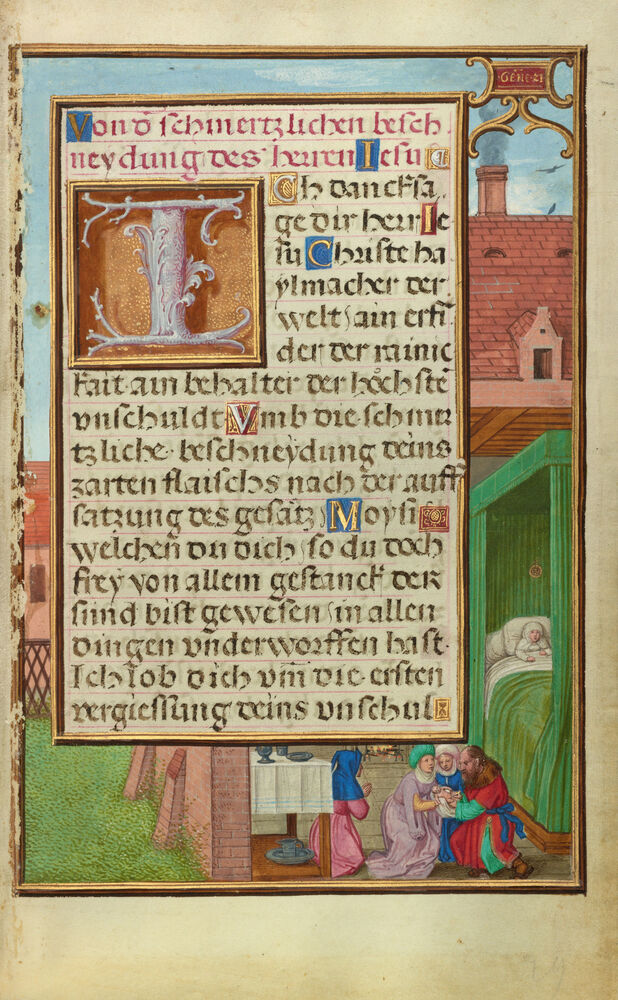 ·GENE·21·
Von d̄ schmertzlichen besch
neydung des herren Iesu
Ich dancksa
ge dir herr Ie
su Christe ha
ylmacher der
welt, ain erfi
der der rainic
kait·ain behalter der höchstē
vnschuldt Vmb die·schmer
tzliche·beschneydung deins
zarten flaischs nach der auff
satzung des gesätz, Moysi
welchen du dich, so du doch
frey von allem gestanck der
sünd bist gewesen, in allen
dingen vnderworffen hast·
Ich lob dich vm̄ die·ersten
vergiessung deins vnschul